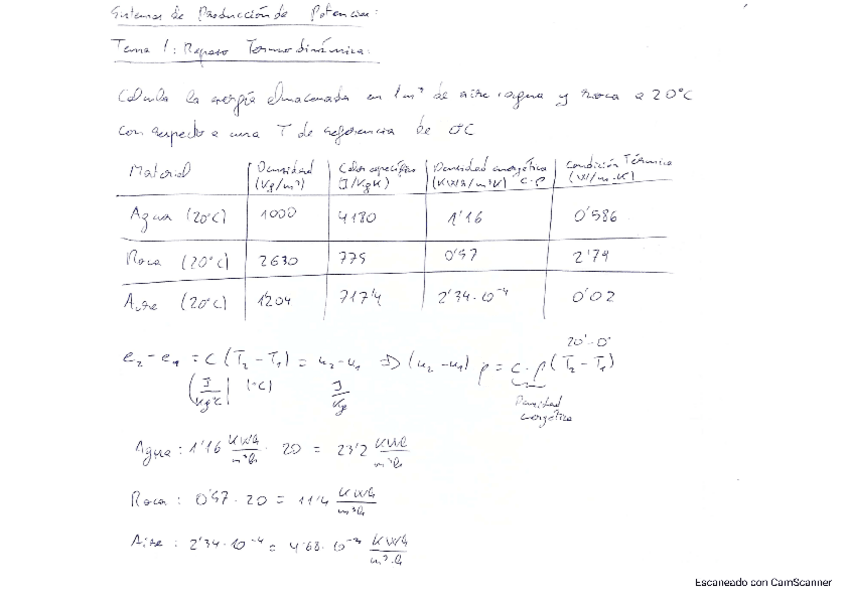 Sistemas de Producción de Potencia:
Tema 1: Repaso Termodinámica.
Calcula la energía almacenada en 1m³ de aire, agua y roca a 20°C
con respecto a una T de referencia de 0°C
Material Densidad (Kg/m³) Calor específico (J/KgK) Densidad energética (KWh/m³K) c·ρ Condición Térmica (W/m·K)
Agua (20°C) 1000 4180 1'16 0'586
Roca (20°C) 2630 775 0'57 2'74
Aire (20°C) 1'204 717'4 2'34·10⁻⁴ 0'02
20°-0°
e₂-e₁ = c(T₂-T₁) = u₂-u₁ ⇒ (u₂-u₁) ρ = c·ρ(T₂-T₁)
(J/KgK) (°C) J/Kg Densidad energética
Agua: 1'16 KWh/m³k · 20 = 23'2 KWh/m³k
Roca: 0'57·20 = 11'4 KWh/m³k
Aire: 2'34·10⁻⁴ = 4'68·10⁻³ KWh/m³·k
Escaneado con CamScanner